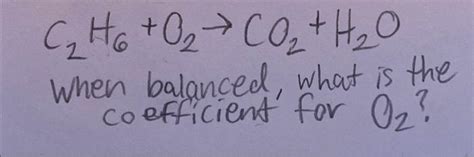 C₂H₆ + O₂ → CO₂ + H₂O
when balanced, what is the
coefficient for O₂?